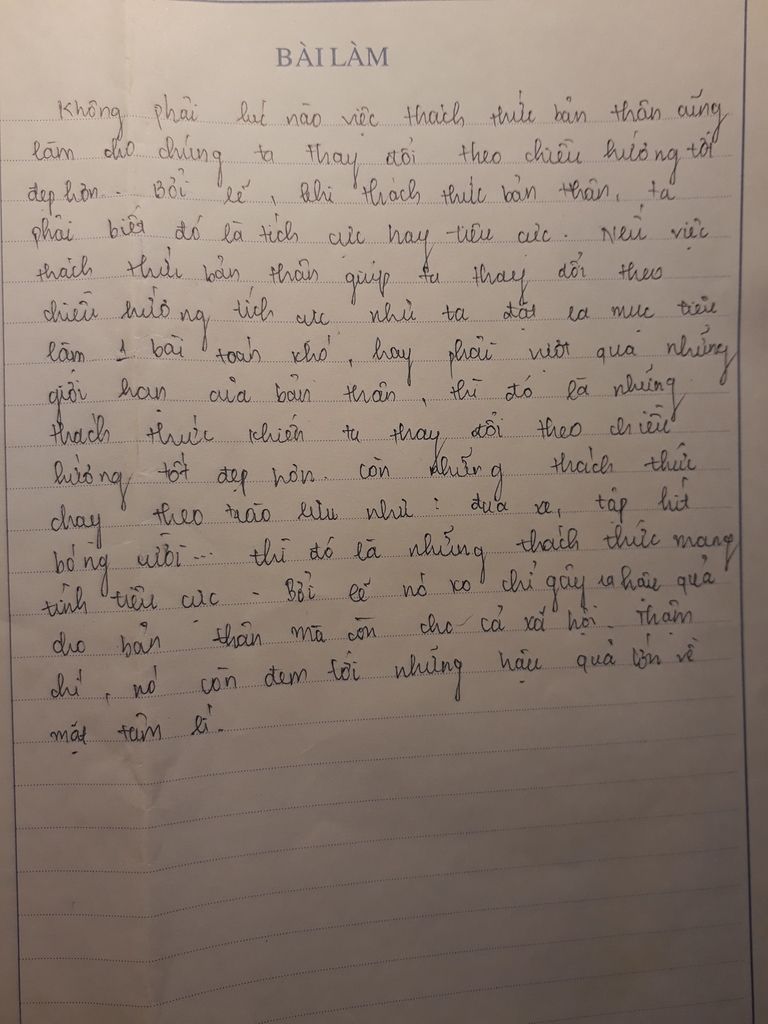 BÀI LÀM
Không phải lúc nào việc thách thức bản thân cũng
làm cho chúng ta thay đổi theo chiều hướng tốt
đẹp hơn. Bởi lẽ, khi thách thức bản thân, ta
phải biết đó là tích cực hay tiêu cực. Nếu việc
thách thức bản thân giúp ta thay đổi theo
chiều hướng tích cực như ta đặt ra mục tiêu
làm 1 bài toán khó, hay phải vượt qua những
giới hạn của bản thân, thì đó là những
thách thức khiến ta thay đổi theo chiều
hướng tốt đẹp hơn. Còn những thách thức
chạy theo trào lưu như: đua xe, tập hít
bóng cười... thì đó là những thách thức mang
tính tiêu cực. Bởi lẽ nó ko chỉ gây ra hậu quả
cho bản thân mà còn cho cả xã hội. Thậm
chí, nó còn đem tới những hậu quả lớn về
mặt tâm lí.